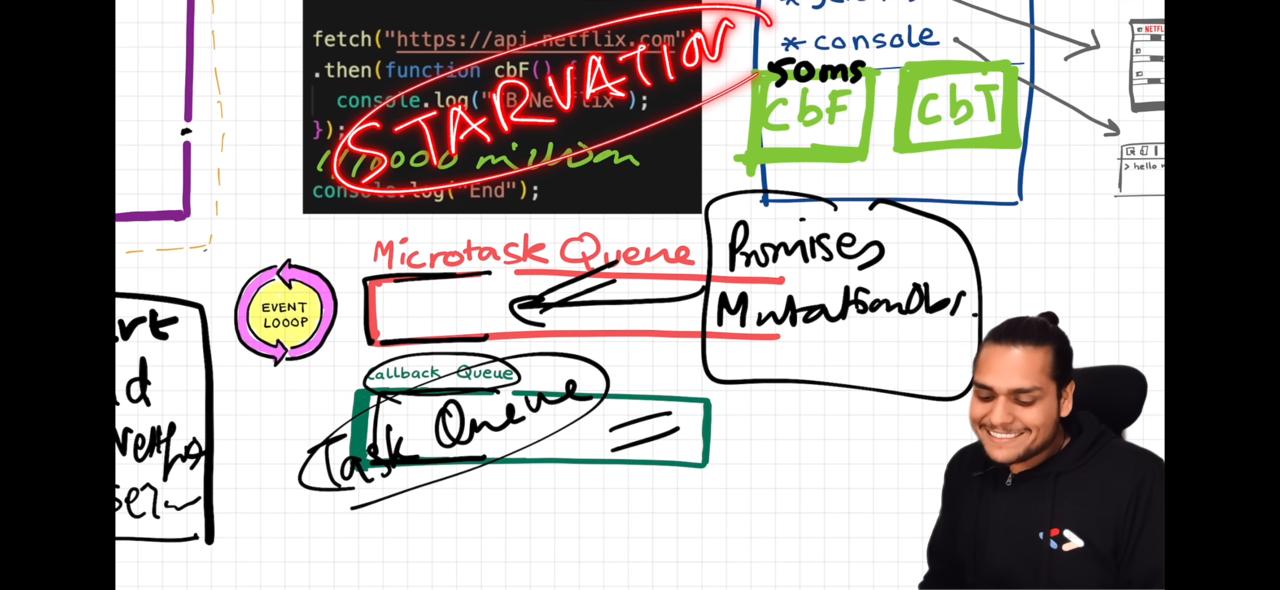 fetch("https://api.netflix.com")
.then(function cbF() {
console.log("CB Netflix");
});
STARVATION
million
console.log("End");
* console
50ms
CbF
CbT
NETFL
> hello
Microtask Queue
Promises
MutationObs.
EVENT
LOOOP
Callback Queue
Task Queue